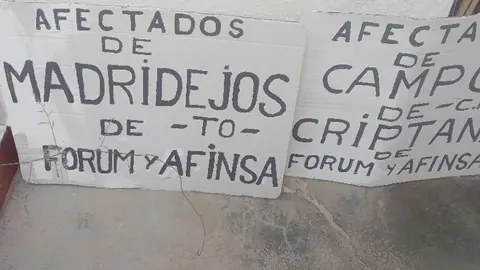 AFECTADOS
DE
MADRIDEJOS
DE -TO-
FORUM Y AFINSA
AFECTA
DE
CAMPO
DE -C.
CRIPTAN
DE
FORUM Y AFINSA